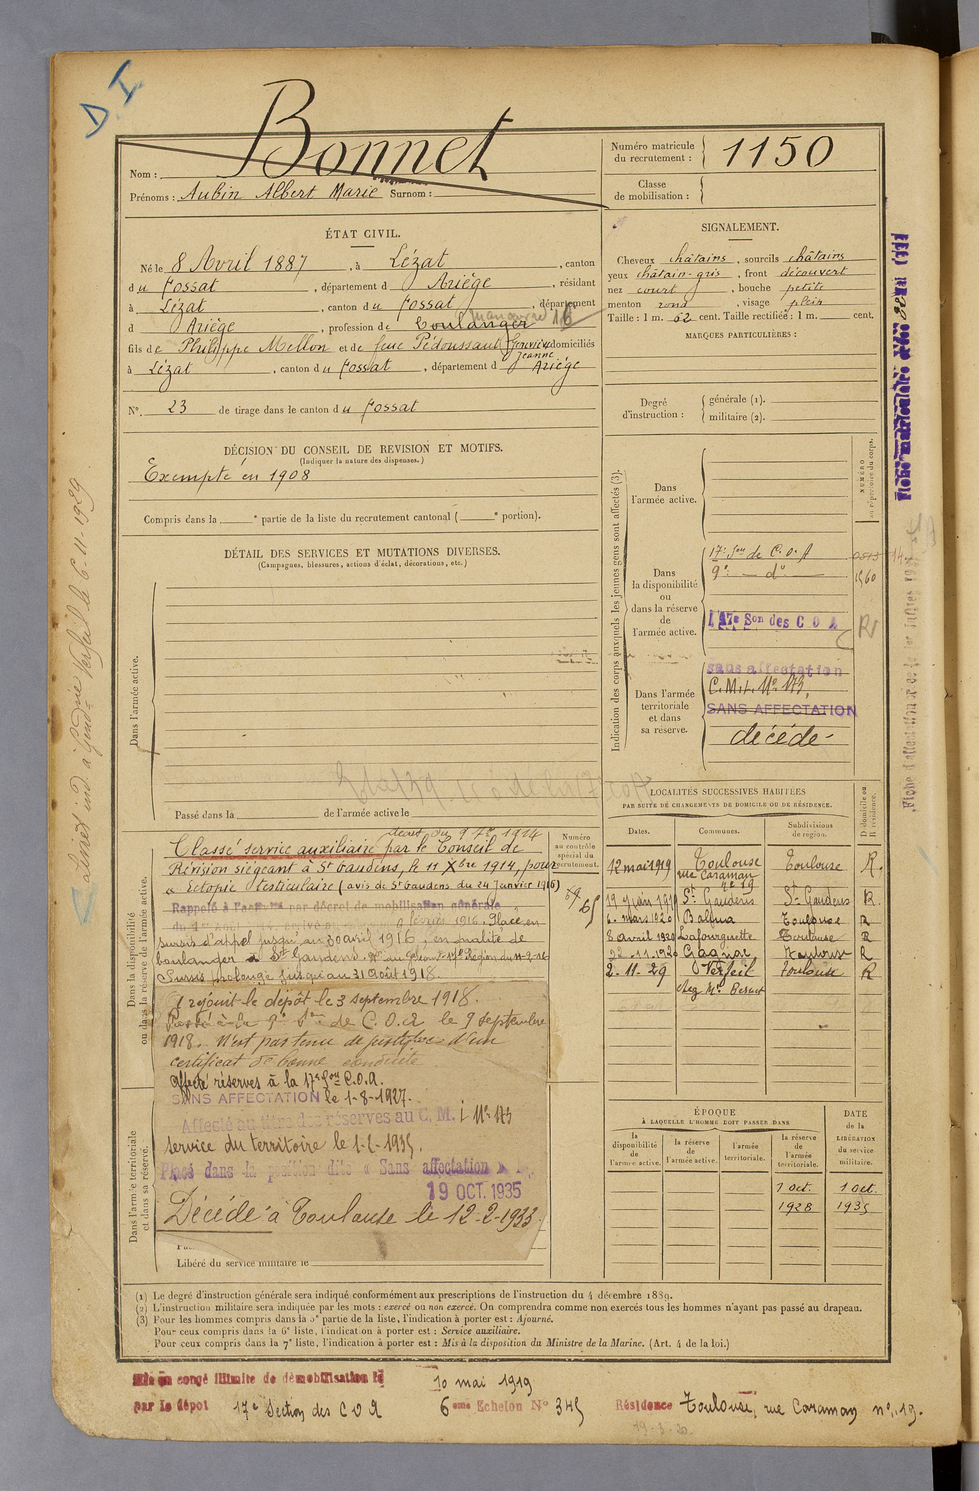 D. I
Bonnet
Nom :
Prénoms : Aubin Albert Marie Surnom :
Numéro matricule
du recrutement : 1150
Classe
de mobilisation :
ÉTAT CIVIL.
Né le 8 Avril 1887, à Lézat, canton
du Fossat, département d Ariège, résidant
à Lézat, canton du Fossat, département
manœuvre 16
d Ariège, profession de boulanger
fils de Philippe Mellon et de feue Pédoussaut domiciliés
Jeanne
à Lézat, canton du Fossat, département d Ariège
N°. 23 de tirage dans le canton du Fossat
SIGNALEMENT.
Cheveux châtains, sourcils châtains
yeux châtain-gris, front découvert
nez court, bouche petite
menton rond, visage plein
Taille : 1 m. 62 cent. Taille rectifiée : 1 m. cent.
MARQUES PARTICULIÈRES :
Degré
d'instruction :
générale (1).
militaire (2).
DÉCISION DU CONSEIL DE REVISION ET MOTIFS.
(Indiquer la nature des dispenses.)
Exempté en 1908
Compris dans la ᵉ partie de la liste du recrutement cantonal ( ᵉ portion).
DÉTAIL DES SERVICES ET MUTATIONS DIVERSES.
(Campagnes, blessures, actions d'éclat, décorations, etc.)
Dans l'armée active.
Passé dans la de l'armée active le
Indication des corps auxquels les jeunes gens sont affectés (3).
NUMÉRO
au répertoire du corps.
Dans
l'armée active.
Dans
la disponibilité
ou
dans la réserve
de
l'armée active.
17e Son de C.O.A
9e — do —
1560
17e Son des C O A
Dans l'armée
territoriale
et dans
sa réserve.
sans affectation
C.M.I. No 173,
SANS AFFECTATION
décédé
LOCALITÉS SUCCESSIVES HABITÉES
PAR SUITE DE CHANGEMENTS DE DOMICILE OU DE RÉSIDENCE.
Dates. Communes. Subdivisions
de région. D. domicile ou
R. résidence.
12 mai 1919 Toulouse Toulouse R.
rue Caraman
no 19
19 juin 1919 St Gaudens St Gaudens R.
6. mars 1920 Balma Toulouse R
8 avril 1920 Lafourguette Toulouse R
22.11.1920 Gagnac Toulouse R
2.11.29 Verfeil Toulouse R
chez Mr
Numéro
au contrôle
spécial du
recrutement.
Dans la disponibilité
ou dans la réserve de l'armée active.
décret du 9 7bre 1914
Classé service auxiliaire par le Conseil de
Révision siégeant à St Gaudens, le 11 Xbre 1914, pour
« Ectopie testiculaire (avis de St Gaudens du 24 Janvier 1916)
Rappelé à l'activité par décret de mobilisation générale
février 1916. Placé en
sursis d'appel jusqu'au 30 avril 1916, en qualité de
boulanger à St Gaudens.
Sursis prolongé jusqu'au 31 Août 1918.
A rejoint le dépôt le 3 septembre 1918.
Passé à la 9e Son de C.O.A le 9 septembre
1918. N'est pas tenu de justifier d'un
certificat de bonne conduite
Affecté réserves à la 17e Son C.O.A.
SANS AFFECTATION le 1-8-1927.
Affecté au titre des réserves au C. M. I No 173
service du territoire le 1-1-1935.
Placé dans la position dite « Sans affectation »
19 OCT. 1935
Décédé à Toulouse le 12-2-1933.
Dans l'armée territoriale
et dans sa réserve.
Libéré du service militaire le
ÉPOQUE
À LAQUELLE L'HOMME DOIT PASSER DANS
la
disponibilité
de
l'armée active.
la réserve
de
l'armée active.
l'armée
territoriale.
la réserve
de
l'armée
territoriale.
DATE
de la
LIBÉRATION
du service
militaire.
1 Oct. 1 Oct.
1928 1935
(1) Le degré d'instruction générale sera indiqué conformément aux prescriptions de l'instruction du 4 décembre 1889.
(2) L'instruction militaire sera indiquée par les mots : exercé ou non exercé. On comprendra comme non exercés tous les hommes n'ayant pas passé au drapeau.
(3) Pour les hommes compris dans la 5e partie de la liste, l'indication à porter est : Ajourné.
Pour ceux compris dans la 6e liste, l'indication à porter est : Service auxiliaire.
Pour ceux compris dans la 7e liste, l'indication à porter est : Mis à la disposition du Ministre de la Marine. (Art. 4 de la loi.)
Mis en congé illimité de démobilisation le 10 mai 1919
par le dépôt 17e Section des C O A 6eme Echelon No 345 Résidence Toulouse, rue Caraman no. 19.